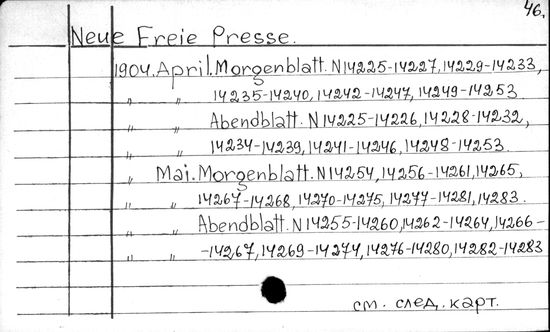 46.
Neue Freie Presse.
1904. April. Morgenblatt. N 14225-14227, 14229-14233,
" " 14235-14240, 14242-14247, 14249-14253.
" " Abendblatt. N 14225-14226, 14228-14232,
" " 14234-14239, 14241-14246, 14248-14253.
" Mai. Morgenblatt. N 14254, 14256-14261, 14265,
" " 14267-14268, 14270-14275, 14277-14281, 14283.
" " Abendblatt. N 14255-14260, 14262-14264, 14266-
" " -14267, 14269-14274, 14276-14280, 14282-14283
см. след. карт.